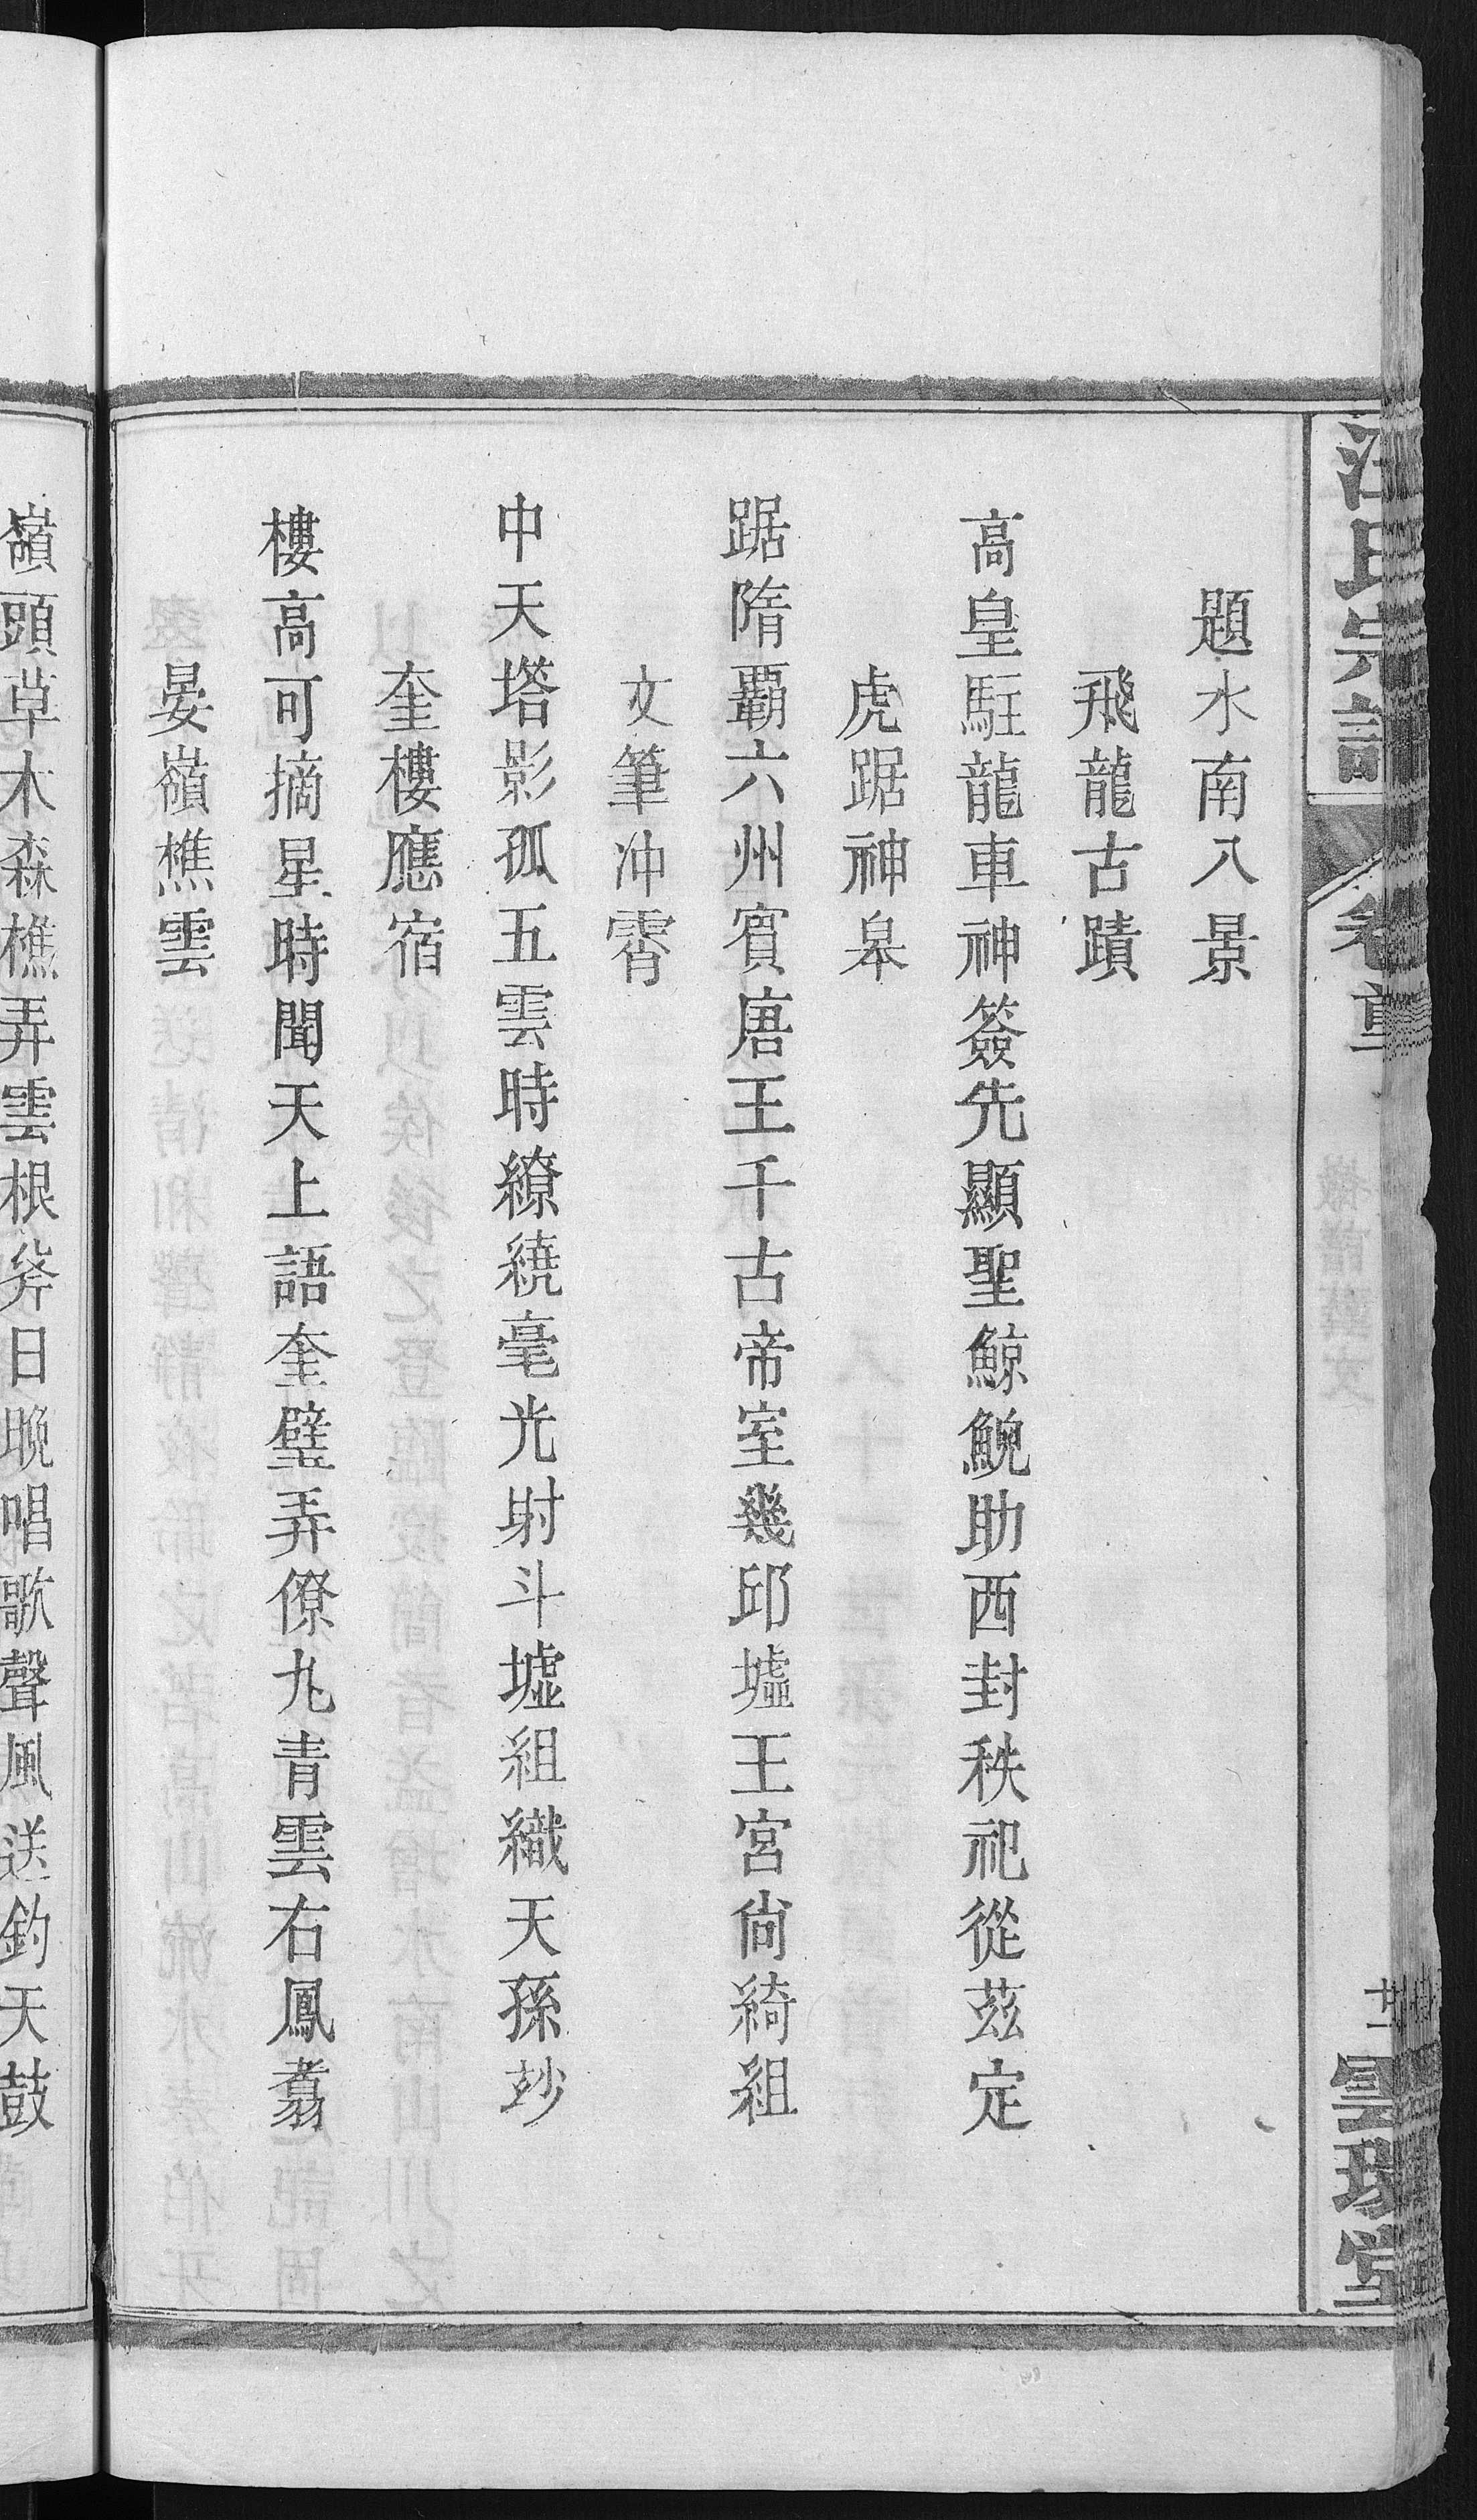 汪氏宗譜
卷首
廿一
雲瑞堂
題水南八景
飛龍古蹟
高皇駐龍車神簽先顯聖鯨鯢助西封秩祀從茲定
虎踞神皋
踞隋覇六州賓唐王千古帝室幾邱墟王宮尙綺組
文筆冲霄
中天塔影孤五雲時繚繞毫光射斗墟組織天孫玅
奎樓應宿
樓高可摘星時聞天上語奎璧弄僚九青雲右鳳翥
晏嶺樵雲
嶺頭草木森樵弄雲根斧日晚唱歌聲風送釣天鼓